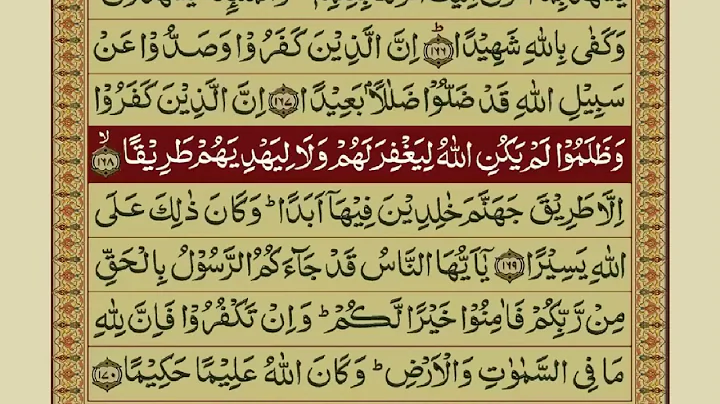 وَكَفٰى بِاللّٰهِ شَهِيْدًا ۝١٦٦ؕ اِنَّ الَّذِيْنَ كَفَرُوْا وَصَدُّوْا عَنْ
سَبِيْلِ اللّٰهِ قَدْ ضَلُّوْا ضَلٰلًاۢ بَعِيْدًا ۝١٦٧ اِنَّ الَّذِيْنَ كَفَرُوْا
وَظَلَمُوْا لَمْ يَكُنِ اللّٰهُ لِيَغْفِرَ لَهُمْ وَلَا لِيَهْدِيَهُمْ طَرِيْقًا ۝١٦٨ۙ
اِلَّا طَرِيْقَ جَهَنَّمَ خٰلِدِيْنَ فِيْهَاۤ اَبَدًا ؕ وَكَانَ ذٰلِكَ عَلَى
اللّٰهِ يَسِيْرًا ۝١٦٩ يٰۤاَيُّهَا النَّاسُ قَدْ جَآءَكُمُ الرَّسُوْلُ بِالْحَقِّ
مِنْ رَّبِّكُمْ فَاٰمِنُوْا خَيْرًا لَّكُمْ ؕ وَاِنْ تَكْفُرُوْا فَاِنَّ لِلّٰهِ
مَا فِى السَّمٰوٰتِ وَالْاَرْضِ ؕ وَكَانَ اللّٰهُ عَلِيْمًا حَكِيْمًا ۝١٧٠